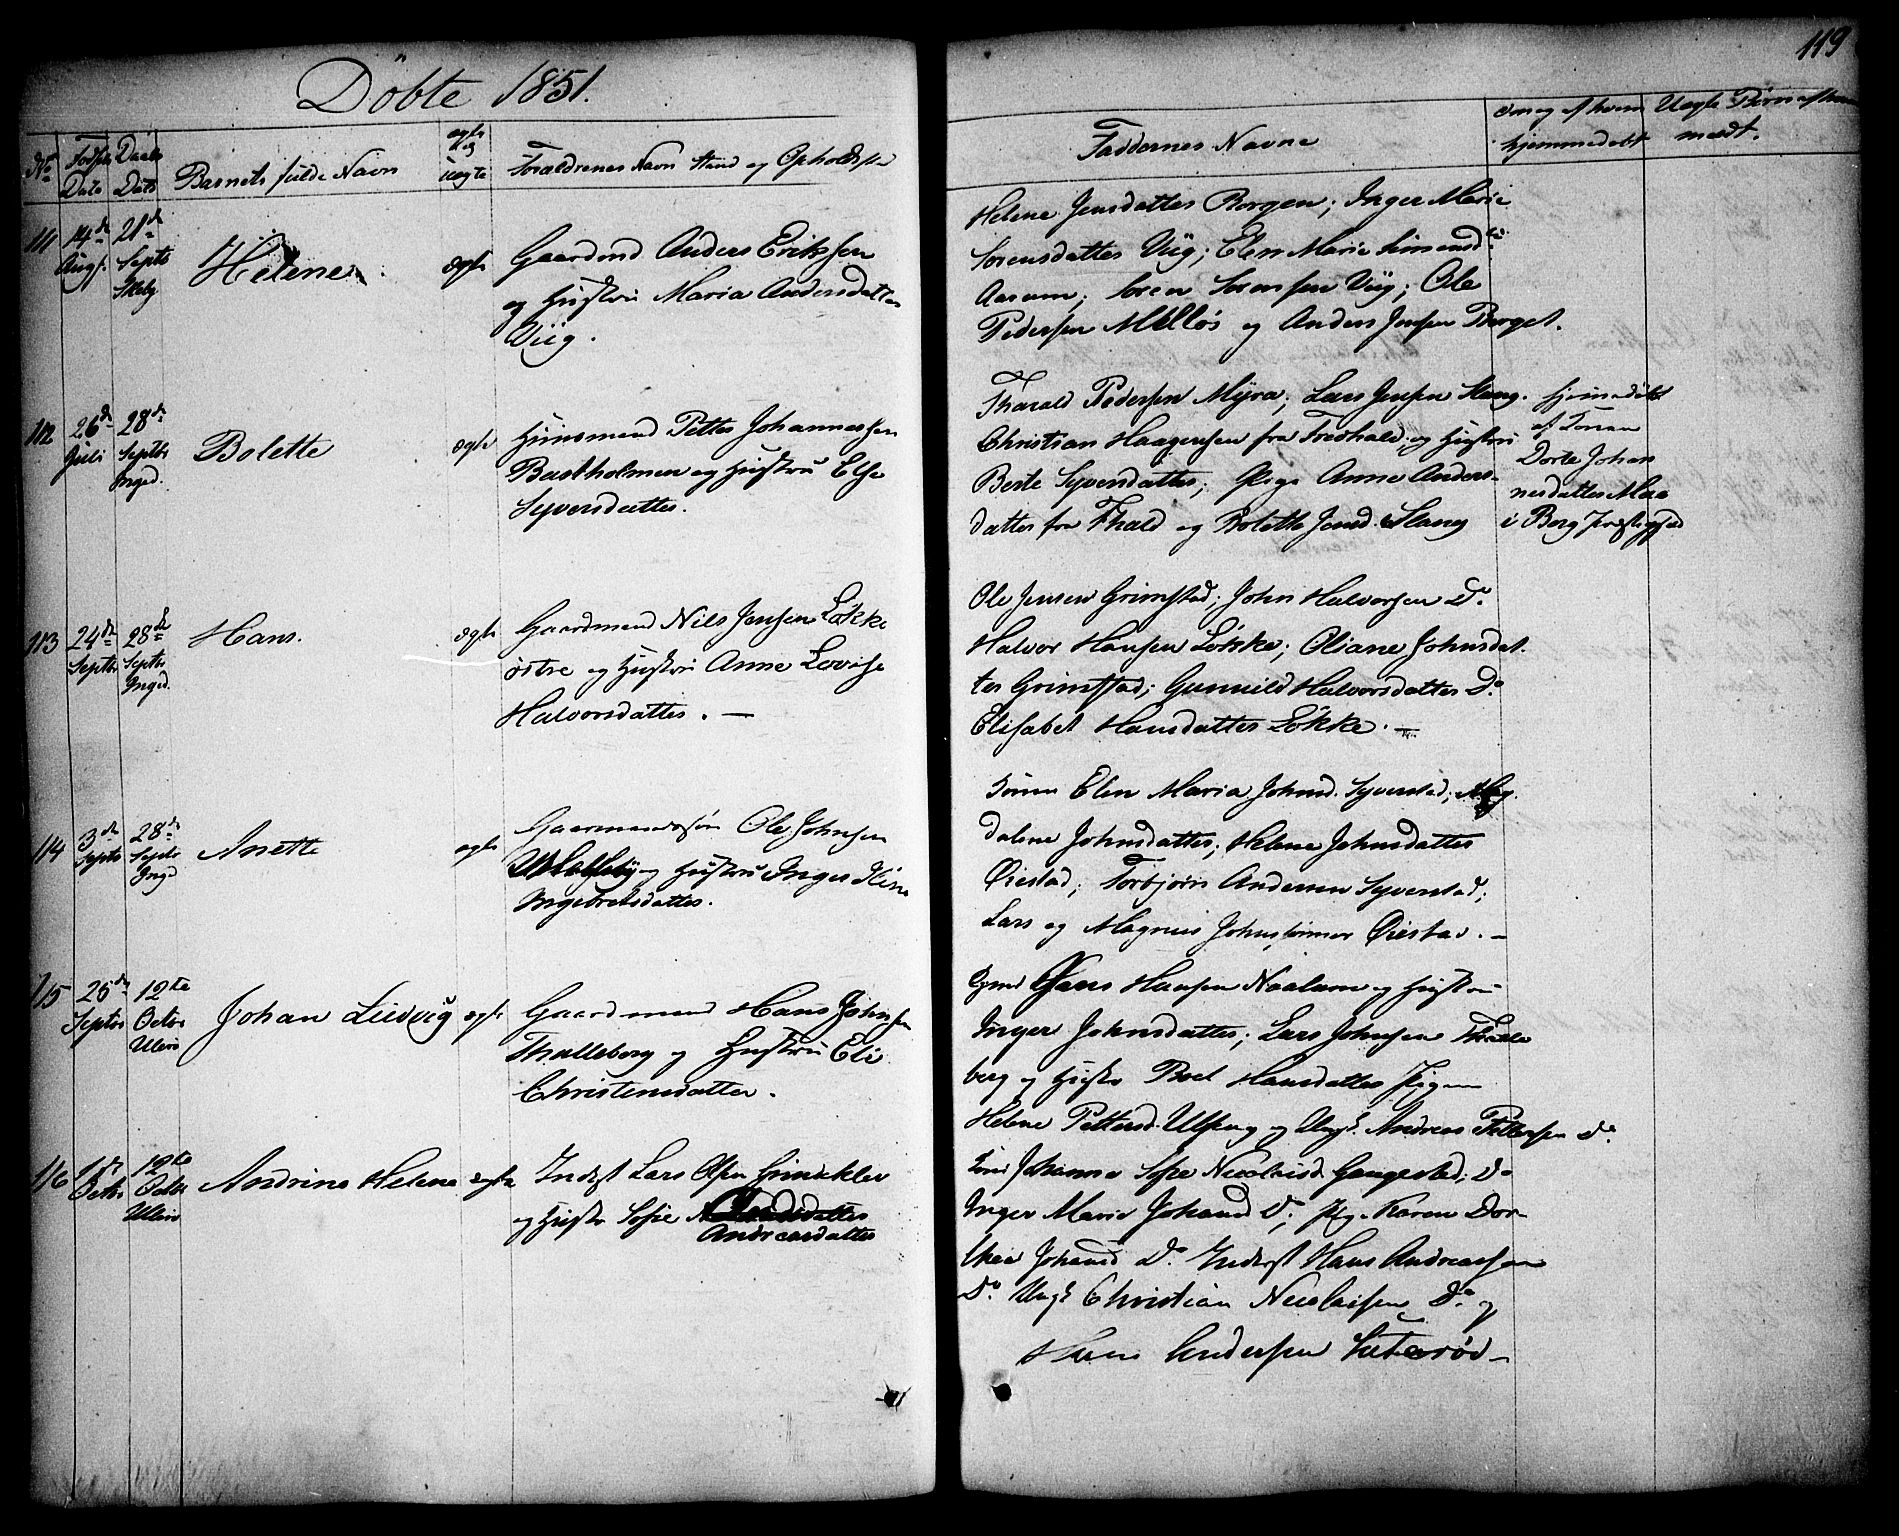 119
Döbte 1851.
No
Fødsels Date
Daabs Date
Barnets fulde Navn
ægte og uægte
Forældrenes Navn Stand og Opholdste
Faddernes Navne
om og af hvem hjemmedøbt
Uægte Børn af hvem
111
14de Augst
21de Septbr
Helene
ægte
Gaardmd Anders Eriksen
og Hustru Maria Andersdatter
Viig.
Helene Jensdatter Borgen; Inger Marie
Sorensdatter Viig; Elen Marie Simensd
Aarum; Soren Sorensen Viig; Ole
Pedersen Melløs og Anders Jensen Berget.
112
26de Juli
28de Septbr Inged.
Bolette
ægte
Huusmand Petter Johannessen
Bastholmen og Hustru Else
Syversdatter.
Tharald Pedersen Myra; Lars Jensen Slang.
Christian Haagensen fra Fredhald og Hustru
Berte Syversdatter; Pige Anne Anders-
datter fra Fhald og Bolette Jensd. Slang
hjemmedøbt
af Konen
Dorte Johan
nesdatter
i Berg Præstegjæld
113
24de Septbr
28de Septbr Inged.
Hans.
ægte
Gaardmand Nils Jensen Løkke
østre og Hustru Anne Lovise
Halvorsdatter. —
Ole Jensen Grimstad; John Halvorsen Do
Halvor Hansen Løkke; Oliane Johnsdat
ter Grimstad; Gunnild Halvorsdatter Do
Elisabet Hansdatter Løkke. —
114
3de Septbr
28de Septbr Inged
Anette
ægte
Gaarmandssøn Ole Johnsen
og Hustru Inger Stine
Ingebretsdatter.
Konen Elen Maria Johnsd. Syverstad; Mag
dalene Johnsdatter; Helene Johnsdatter
Øiestad; Torbjørn Andersen Syverstad;
Lars og Magnus Johnssønner Øiestad. —
115
25de Septbr
12te Octbr Ulerø
Johan Ludvig
ægte
Gaardmand Hans Johnsen
Thalleberg og Hustru Eli
Christensdatter.
Gmd Hans Hansen Naalum og Hustru
Inger Johnsdatter; Lars Johnsen Thalle
berg og Hustr Boel Hansdatter Pigen
Helene Pettersd. Ulseng og Ungk. Andreas Pettersen Do.
116
1de Octbr
12te Octbr Ulerø
Andrine Helene
ægte
Inderst Lars Olsen Grimsklev
og Hustr Sofie
Andreasdatter
Kone Johanne Sofie Nicolaisd. Gangestad; Do
Inger Marie Johansd Do; Pig. Karen Dor-
thea Johansd Do. Inderst Hans Andreassen
Do. Ungk Christian Nicolaisen Do og
Hans Andersen